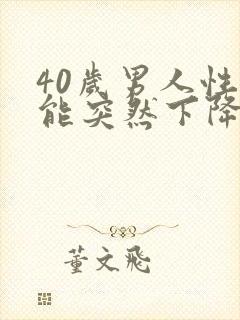 40岁男人性
能突然下降
董文飛